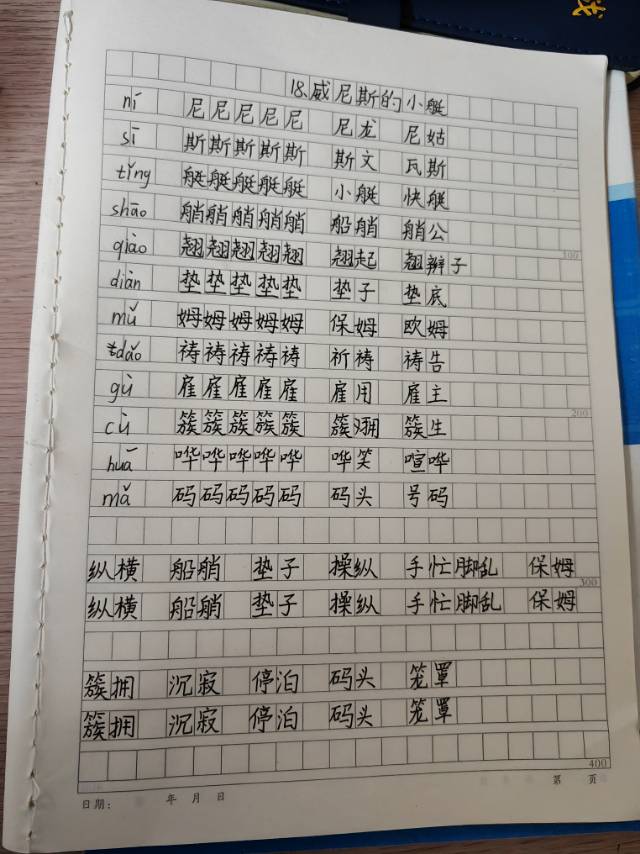 18.威尼斯的小艇
ní 尼尼尼尼尼 尼龙 尼姑
sī 斯斯斯斯斯 斯文 瓦斯
tǐng 艇艇艇艇艇 小艇 快艇
shāo 艄艄艄艄艄 船艄 艄公
100
qiào 翘翘翘翘翘 翘起 翘辫子
diàn 垫垫垫垫垫 垫子 垫底
mǔ 姆姆姆姆姆 保姆 欧姆
dǎo 祷祷祷祷祷 祈祷 祷告
gù 雇雇雇雇雇 雇用 雇主
200
cù 簇簇簇簇簇 簇拥 簇生
huá 哗哗哗哗哗 哗笑 喧哗
mǎ 码码码码码 码头 号码
纵横 船艄 垫子 操纵 手忙脚乱 保姆
300
纵横 船艄 垫子 操纵 手忙脚乱 保姆
簇拥 沉寂 停泊 码头 笼罩
簇拥 沉寂 停泊 码头 笼罩
400
日期： 年 月 日 第 页